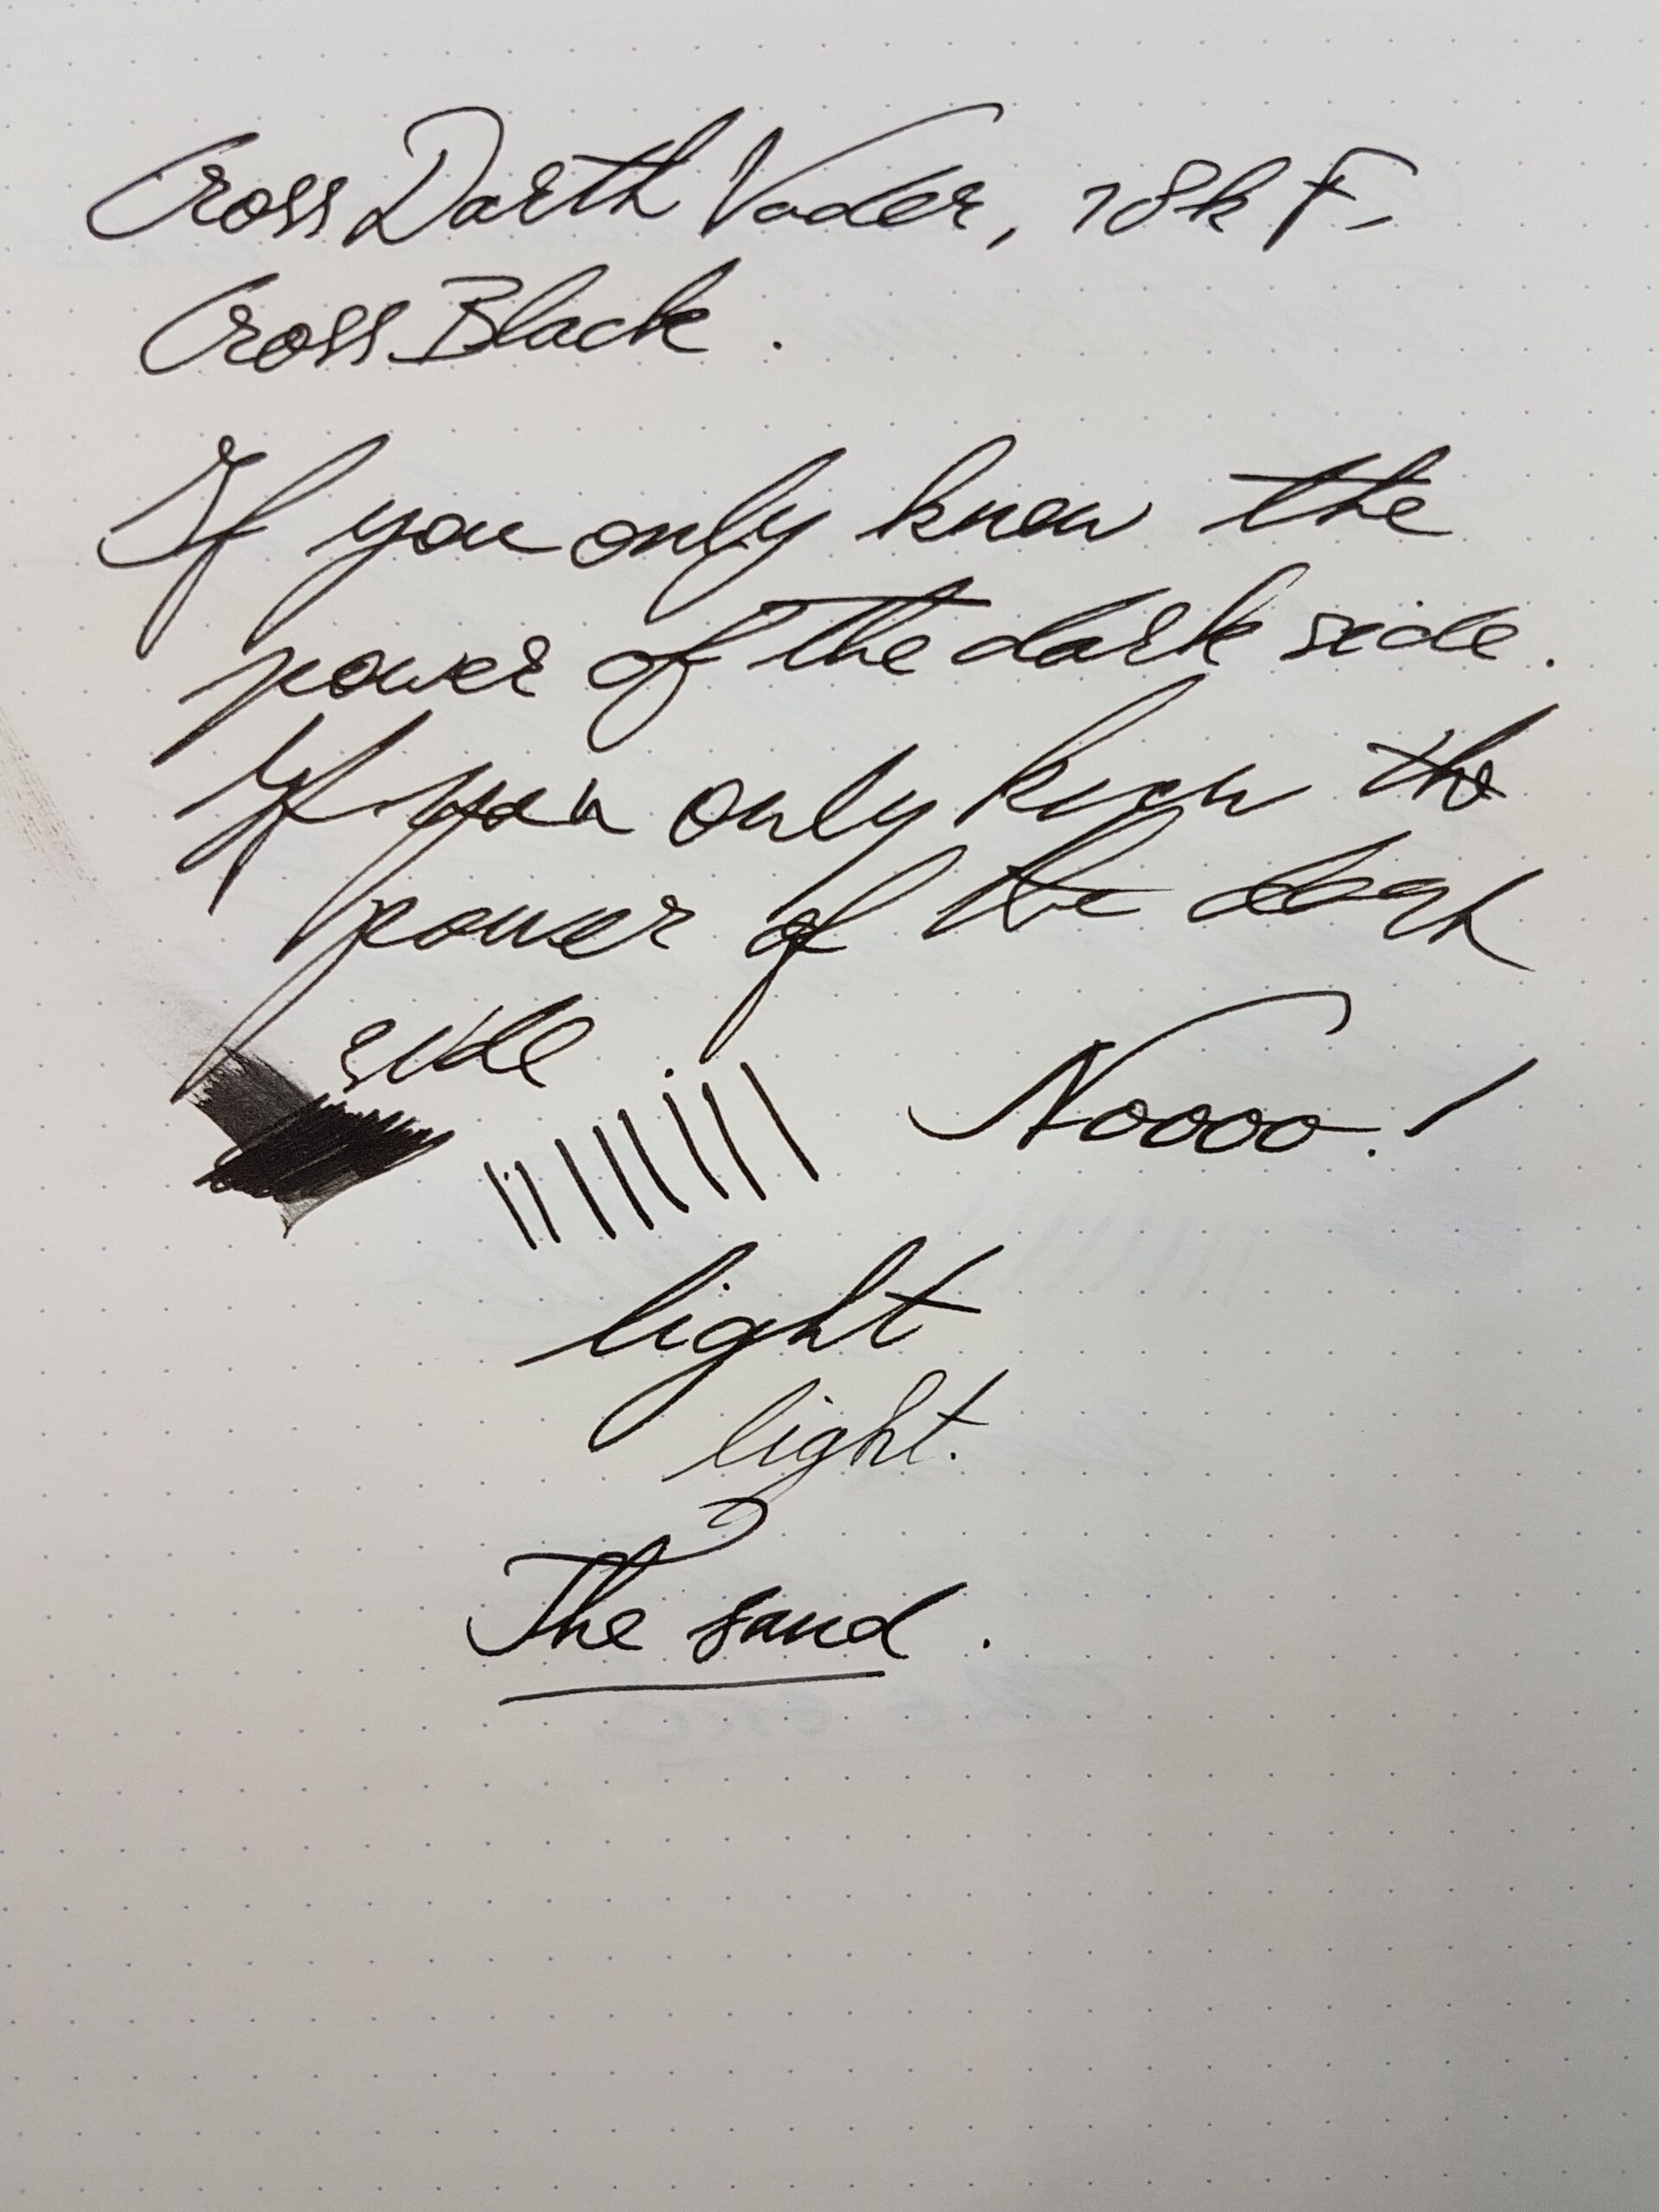 Cross Darth Vader, 18k F,
Cross Black.
If you only know the
power of the dark side.
If you only know the
power of the dark
side.
Noooo!
light
light.
The sand.